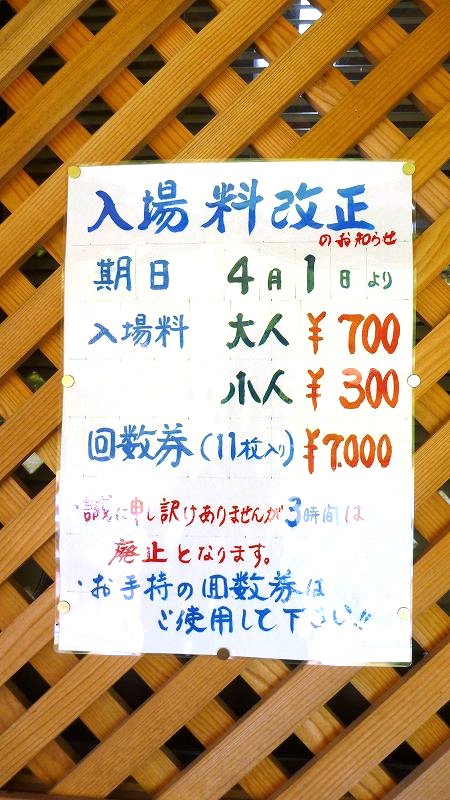 入場料改正
のお知らせ
期日 4月1日より
入場料 大人 ¥700
小人 ¥300
回数券(11枚入り) ¥7.000
・誠に申し訳けありませんが3時間は
廃止となります。
・お手持の回数券は
ご使用して下さい!!